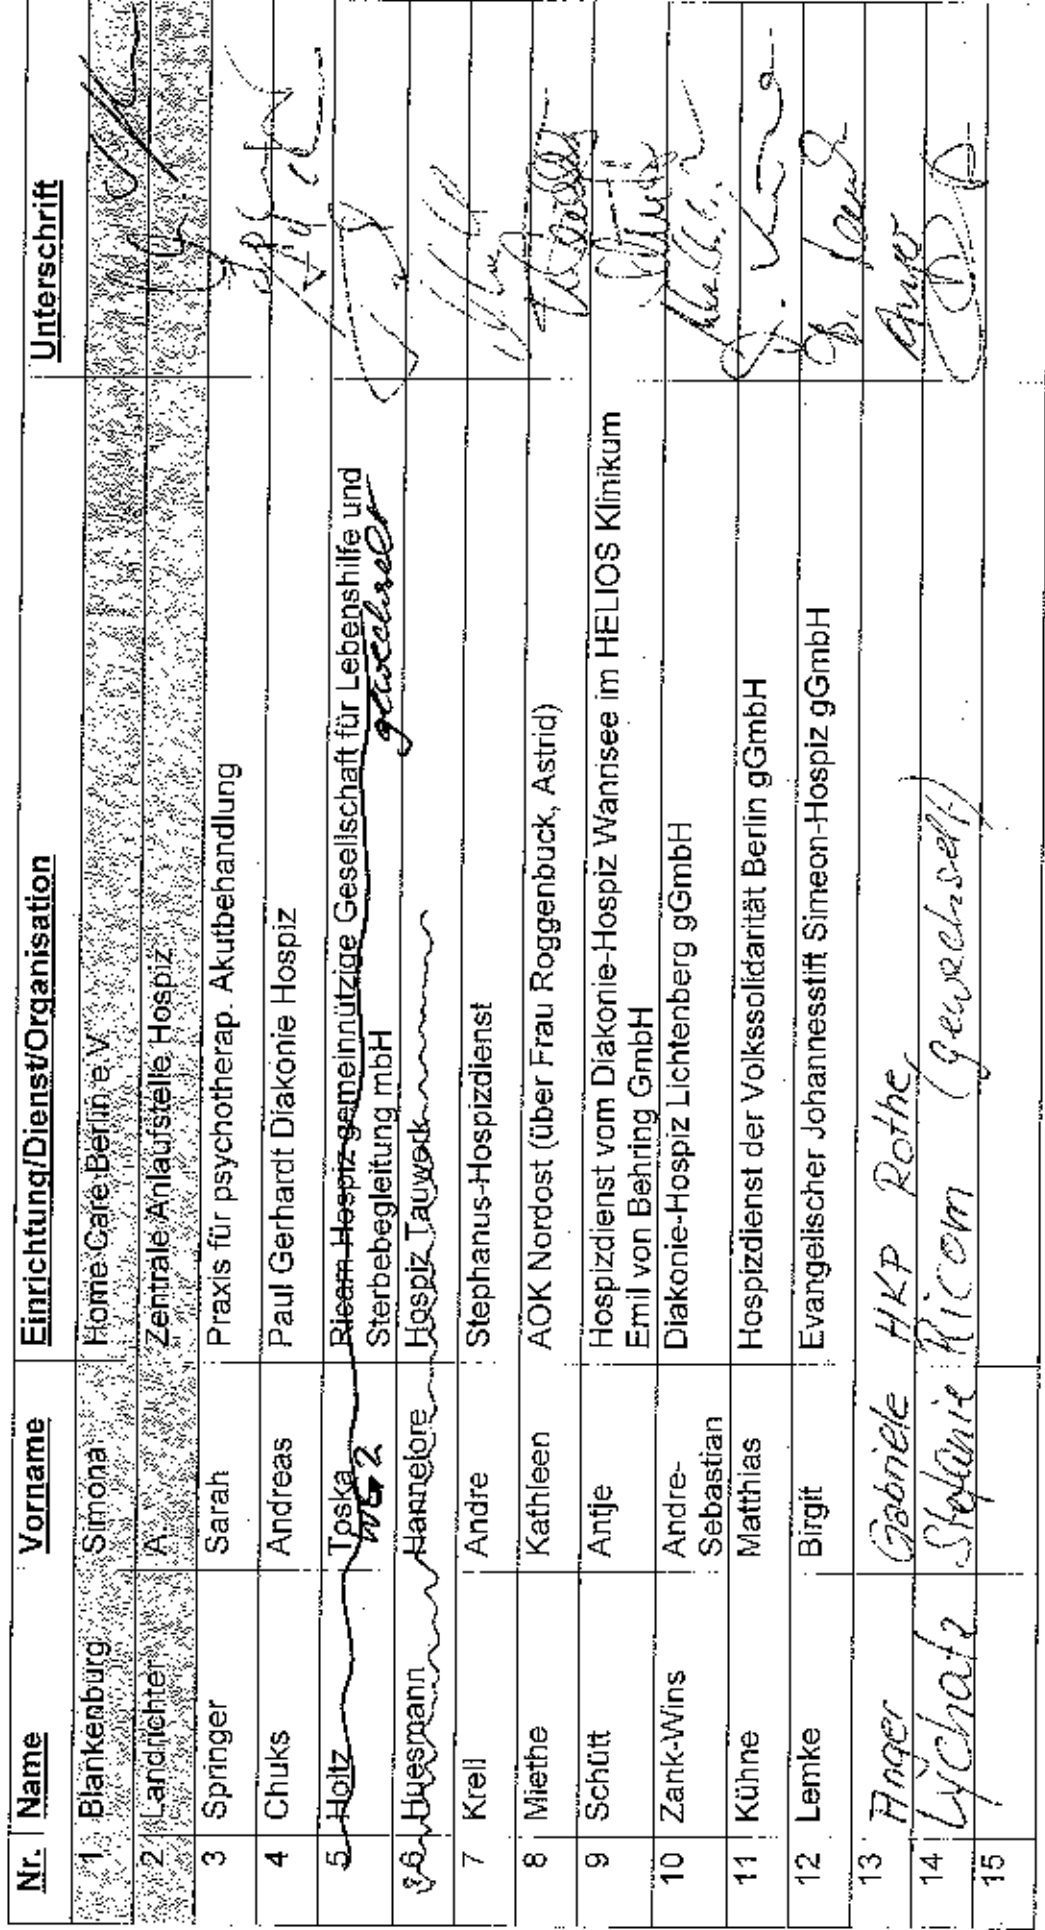 Nr. Name Vorname Einrichtung/Dienst/Organisation Unterschrift
1 Blankenburg Simona Home Care Berlin e.V.
2 Landrichter A. Zentrale Anlaufstelle Hospiz
3 Springer Sarah Praxis für psychotherap. Akutbehandlung
4 Chuks Andreas Paul Gerhardt Diakonie Hospiz
5 Holtz Toska Ricam Hospiz gemeinnützige Gesellschaft für Lebenshilfe und
WG 2 Sterbebegleitung mbH gewechselt
6 Huesmann Hannelore Hospiz Tauwerk
7 Krell Andre Stephanus-Hospizdienst
8 Miethe Kathleen AOK Nordost (über Frau Roggenbuck, Astrid)
9 Schütt Antje Hospizdienst vom Diakonie-Hospiz Wannsee im HELIOS Klinikum
Emil von Behring GmbH
10 Zank-Wins Andre- Diakonie-Hospiz Lichtenberg gGmbH
Sebastian
11 Kühne Matthias Hospizdienst der Volkssolidarität Berlin gGmbH
12 Lemke Birgit Evangelischer Johannesstift Simeon-Hospiz gGmbH
13 Anger Gabriele HKP Rothe Anger
14 Lychatz Stefanie Ricam (gewechselt)
15